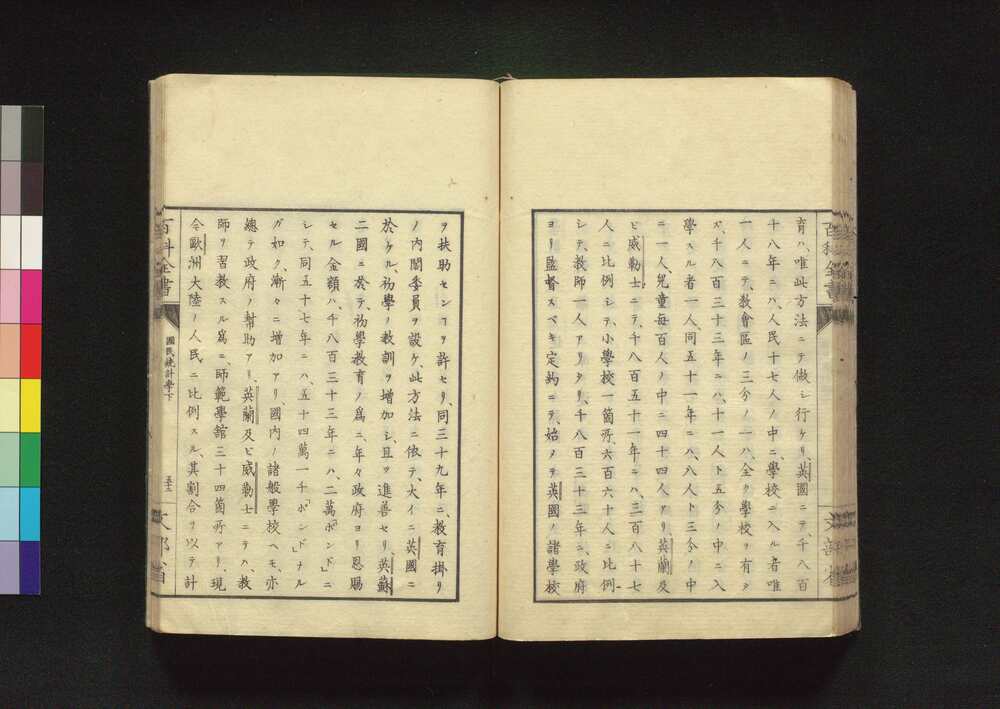 育ハ、唯此方法ニテ做シ行ケリ、英國ニテ、千八百
十八年ニハ、人民十七人ノ中ニ、學校ニ入ル者唯
一人ニテ、敎會區ノ三分ノ一ハ、全ク學校ヲ有セ
ス、千八百三十三年ニハ、十一人ト五分ノ中ニ入
學スル者一人、同五十一年ニハ、八人ト三分ノ中
ニ一人、兒童每百人ノ中ニ四十四人アリ、英蘭及
ヒ威勒士ニテ、千八百五十一年ニハ、三百八十七
人ニ比例シテ、小學校一箇所、六百六十人ニ比例
シテ、敎師一人アリタリ、千八百三十三年ニ、政府
ヨリ監督スベキ定約ニテ、始メテ英國ノ諸學校
百科全書
文部省
ヲ扶助センヿヲ許セリ、同三十九年ニ、敎育掛リ
ノ内閣委員ヲ設ケ、此方法ニ依テ、大イニ英國ニ
於ケル、初學ノ敎訓ヲ增加シ、且ツ進善セリ、英蘇
二國ニ於テ、初學敎育ノ爲ニ、年々政府ヨリ恩賜
セル金額ハ、千八百三十三年ニハ、二萬「ポンド」ニ
シテ、同五十七年ニハ、五十四萬一千「ポンド」ナル
ガ如ク、漸々ニ增加アリ、國内ノ諸般學校ヘモ、亦
總テ政府ノ幇助アリ、英蘭及ヒ威勒士ニテハ、敎
師ヲ習敎スル爲ニ、師範學館三十四箇所アリ、現
今歐洲大陸ノ人民ニ比例スル、其割合ヲ以テ計
百科全書
國民統計學下
文部省